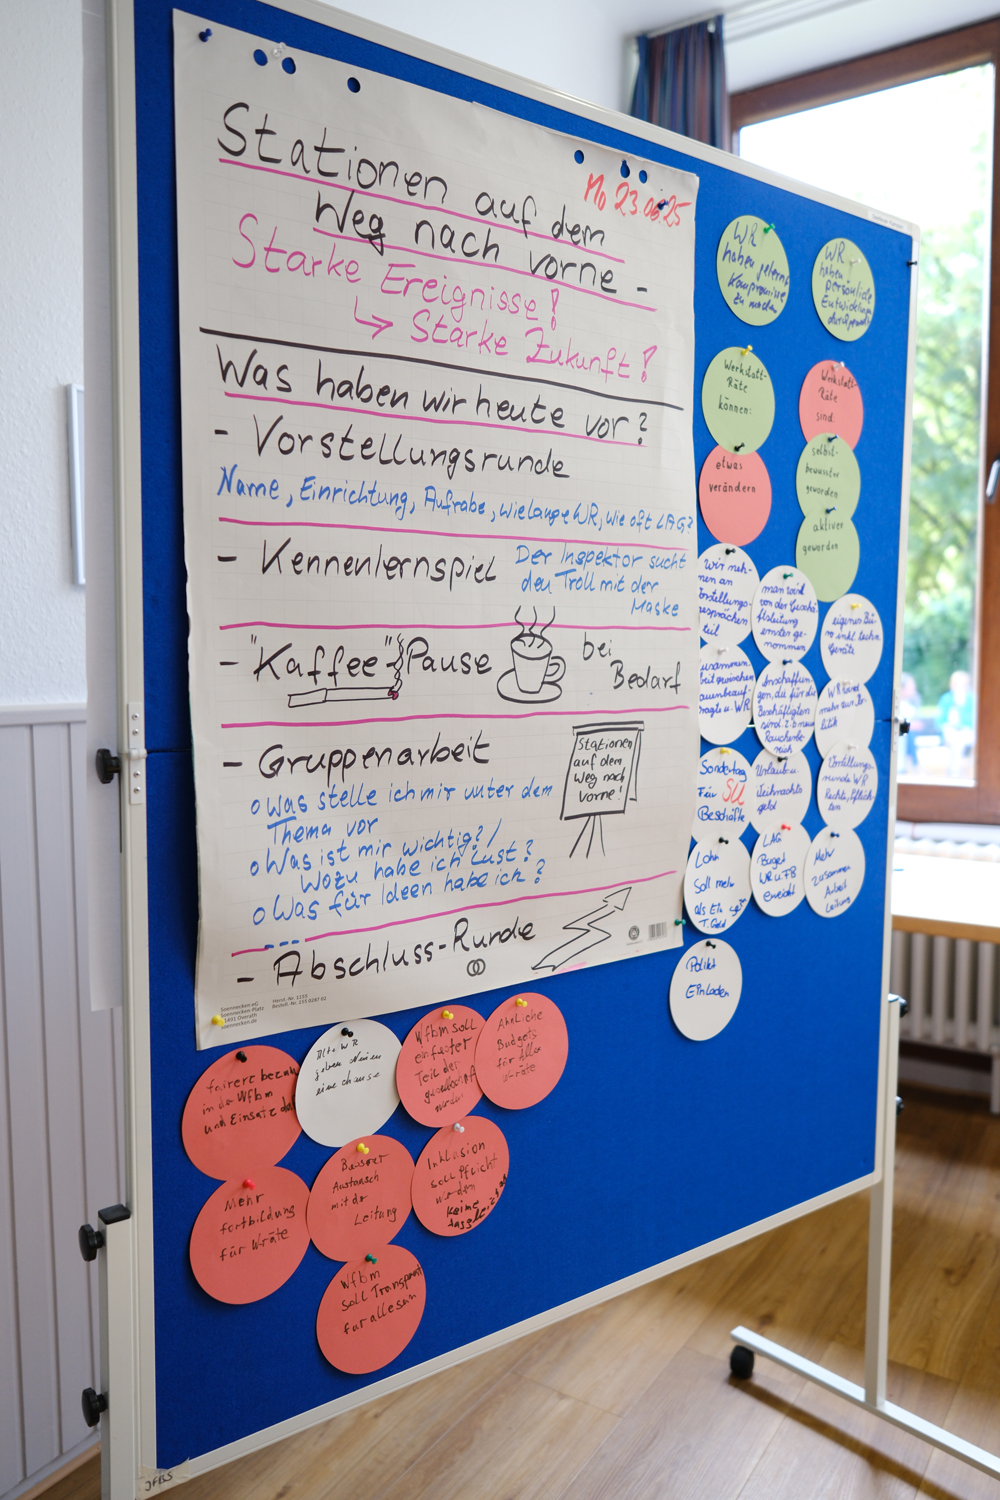 Stationen auf dem
Mo 23.06.25
Weg nach vorne -
Starke Ereignisse!
↳ Starke Zukunft!
Was haben wir heute vor?
- Vorstellungsrunde
Name, Einrichtung, Aufrabe, wielange WR, wie oft LAG?
- Kennenlernspiel
Der Inspektor sucht
den Troll mit der
Maske
- "Kaffee"-Pause
bei
Bedarf
- Gruppenarbeit
Stationen
auf dem
Weg nach
vorne!
o Was stelle ich mir unter dem
Thema vor
o Was ist mir wichtig? /
Wozu habe ich Lust?
o Was für Ideen habe ich?
- Abschluss-Runde
WR
haben gelernt
Kompromisse
zu machen
WR
haben
persönliche
Entwicklung
Werkstatt-
Räte
können:
etwas
verändern
Werkstatt-
Räte
sind
selbst-
bewusster
geworden
aktiver
geworden
Wir neh-
men an
gesprächen
teil
man wird
von der Geschä-
ftsleitung
ernster ge-
nommen
eigenes Bü-
ro inkl. techn.
Geräte
WR
Anschaffun-
gen, die für die
Beschäftigten
sind z.b neue
Raucherbe-
reich
WR
mehr zur Po-
litik
Sondertag
Für SU
Beschäfte
Urlaub u.
Weihnachts
geld
WR
Rechte, Pflich-
ten
Lohn
Soll mehr
als
T.Geld
LAG
Buget
WR u FB
erreicht
Mehr
Zusammen
Arbeit
Leitung
Polikt
Einladen
fairere bezah
in der Wfbm
und Einsatz
Alte WR
geben Neuen
eine chance
Wfbm soll
einfacher
Teil der
gesellschaft
werden
Ähnliche
Budgets
für Alle
Wräte
Mehr
fortbildung
für Wräte
Besserer
Austausch
mit der
Leitung
Inklusion
soll Pflicht
werden
keine
Wfbm
soll Transparent
für alle sein
JFBS